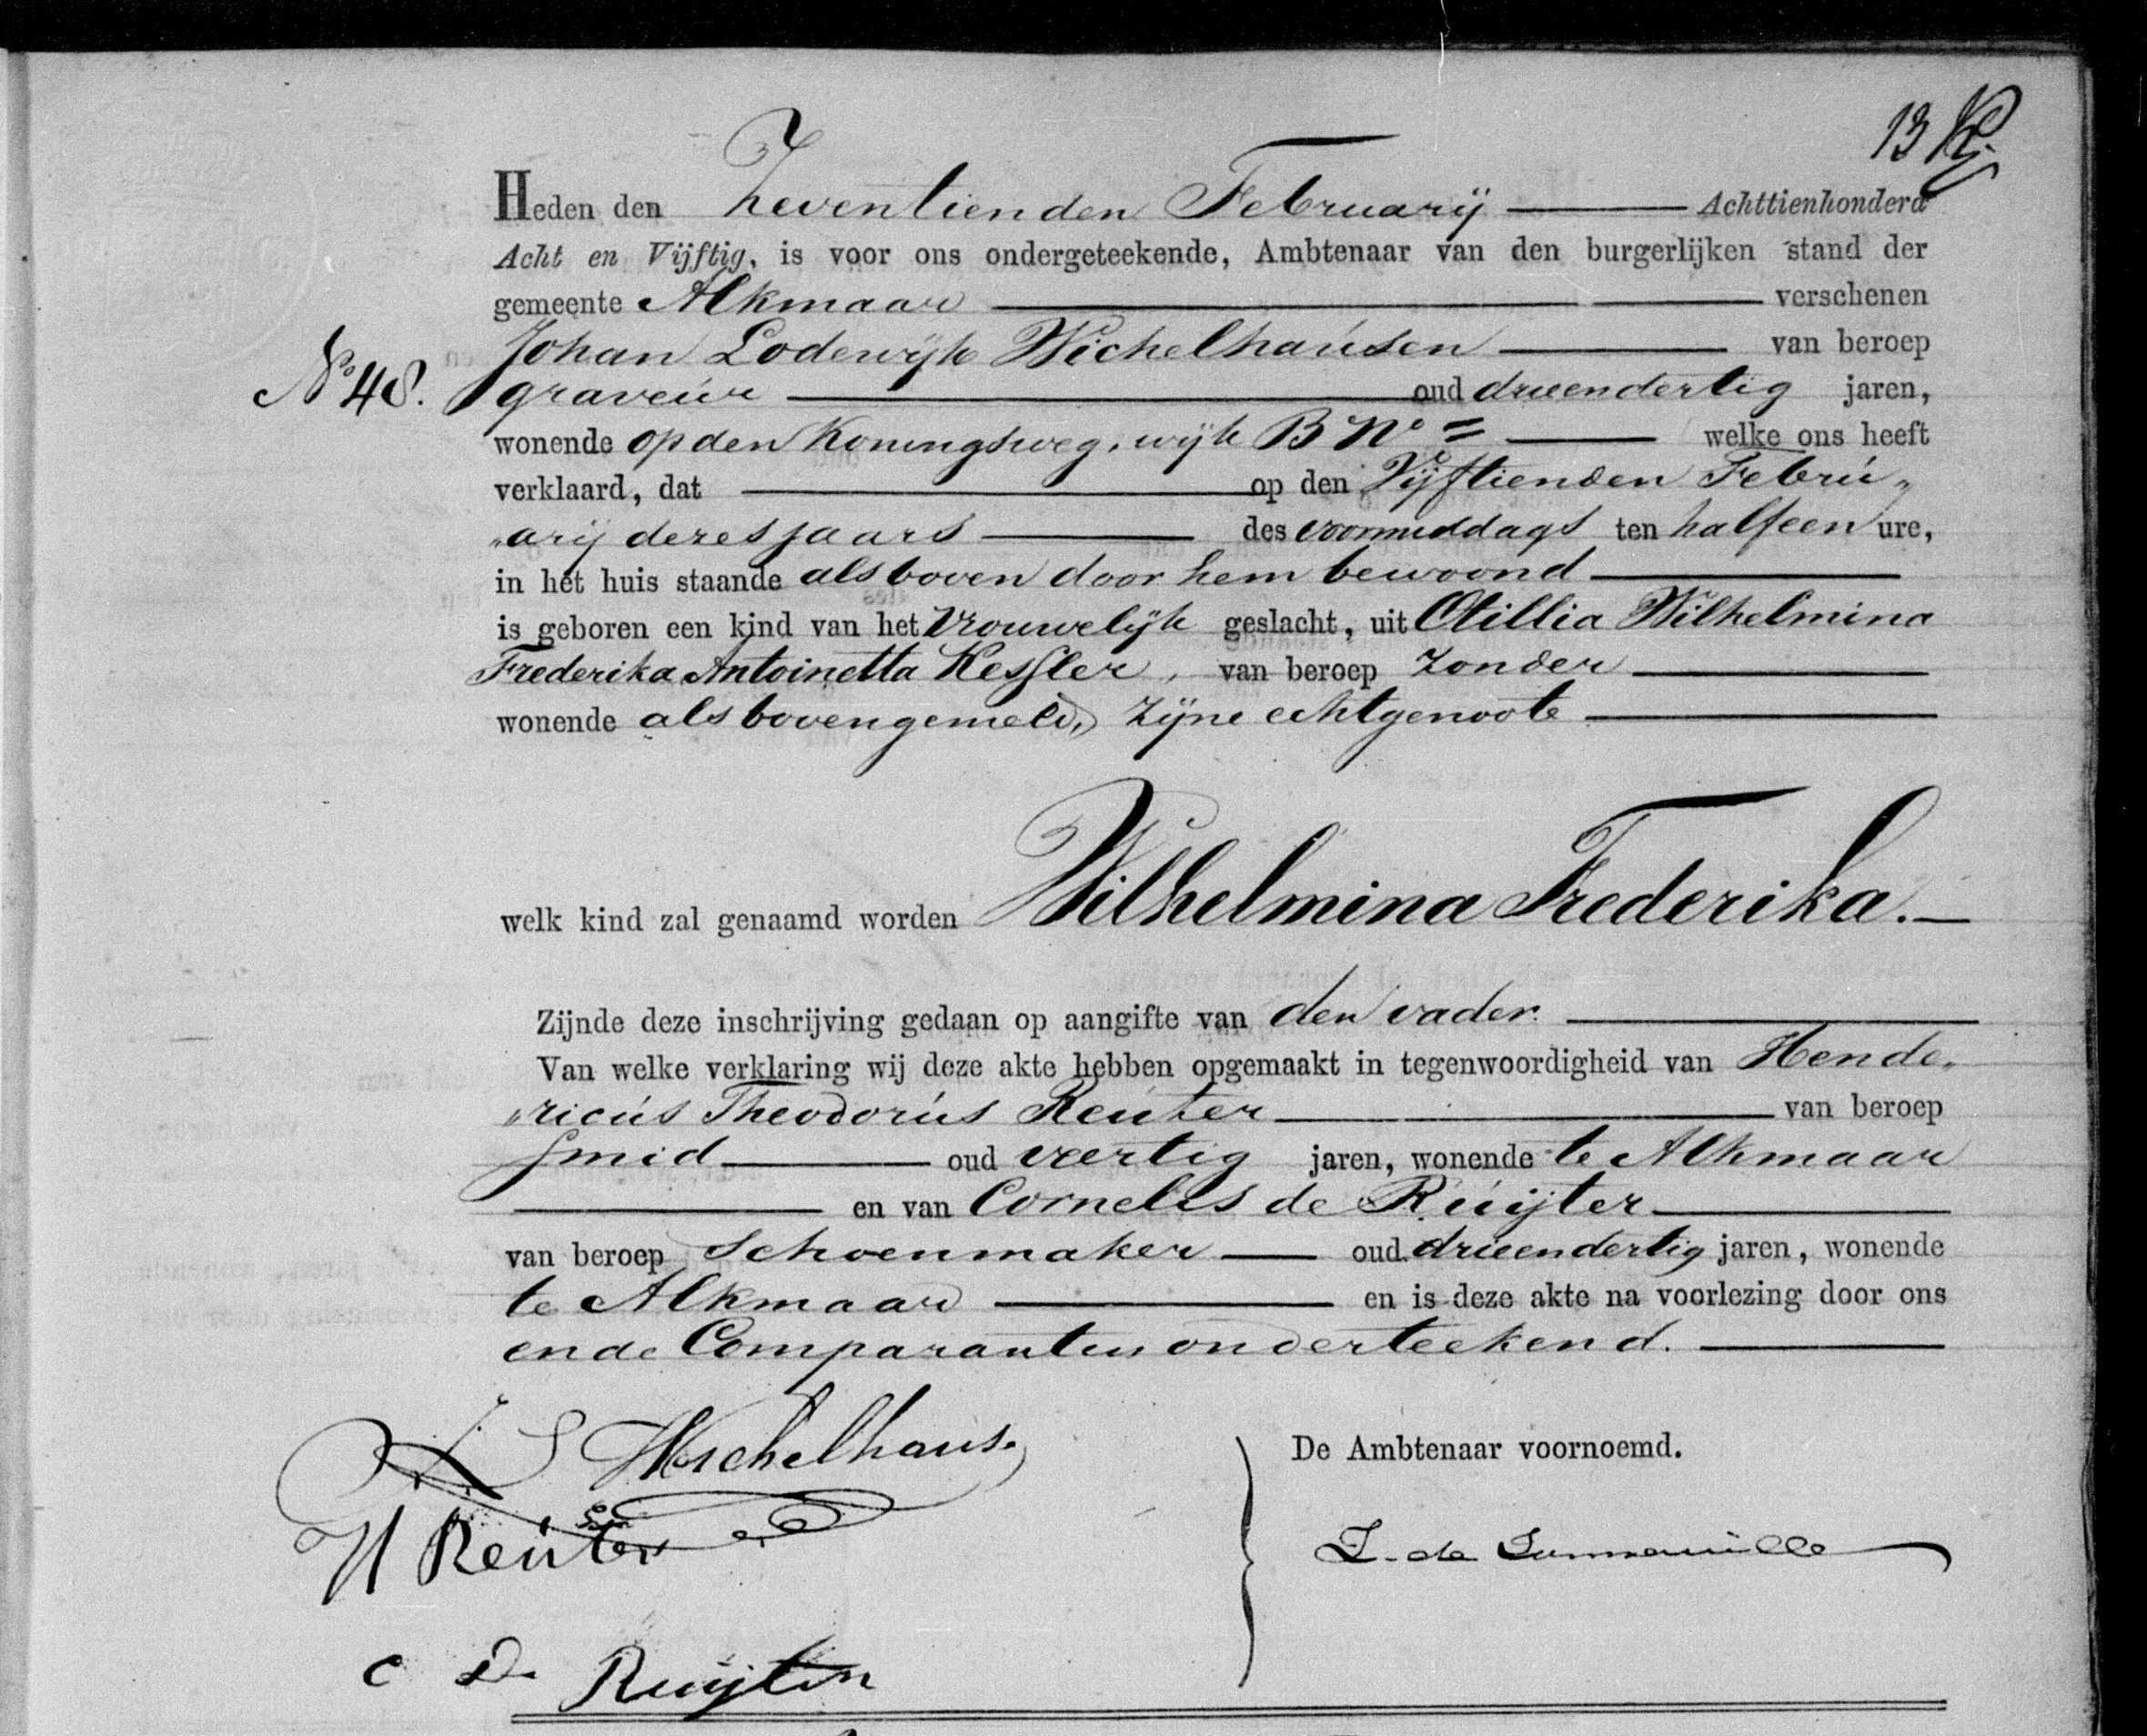 13
Heden den Zeventienden Februarij Achttienhonderd
Acht en Vijftig, is voor ons ondergeteekende, Ambtenaar van den burgerlijken stand der
gemeente Alkmaar verschenen
Johan Lodewijk Wichelhausen van beroep
No 48. graveur oud drieendertig jaren,
wonende op den Koningsweg, wijk B No = welke ons heeft
verklaard, dat op den Vijftienden Febru„
„arij dezes jaars des voormiddags ten half een ure,
in het huis staande als boven door hem bewoond
is geboren een kind van het Vrouwelijk geslacht, uit Otillia Wilhelmina
Frederika Antoinetta Kessler, van beroep zonder
wonende als bovengemeld, zijne echtgenoote
welk kind zal genaamd worden Wilhelmina Frederika.
Zijnde deze inschrijving gedaan op aangifte van den vader.
Van welke verklaring wij deze akte hebben opgemaakt in tegenwoordigheid van Hende„
„ricus Theodorus Reuter van beroep
smid oud veertig jaren, wonende te Alkmaar
en van Cornelis de Ruijter
van beroep Schoenmaker oud drieendertig jaren, wonende
te Alkmaar en is deze akte na voorlezing door ons
en de Comparanten onderteekend.
Wichelhaus
De Ambtenaar voornoemd.
H Reuter
C De Ruijter